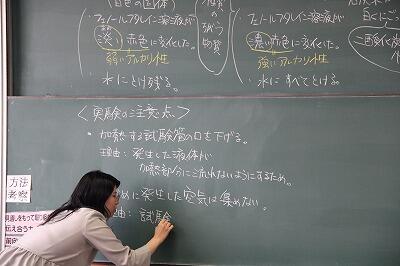 (白色の固体)
・フェノールフタレイン溶液が
淡い赤色に変化した。
弱いアルカリ性
・水にとけ残る。
残う
物質
・フェノールフタレイン溶液が
濃い赤色に変化した。
強いアルカリ性
・水に すべてとける。
白くにご
二酸化炭
<実験の注意点>
・加熱する試験管の口を下げる。
理由：発生した液体が
加熱部分に流れないようにするため。
めに発生した空気は集めない。
由：試験
方法
考察
見通しをもって
伝え合う